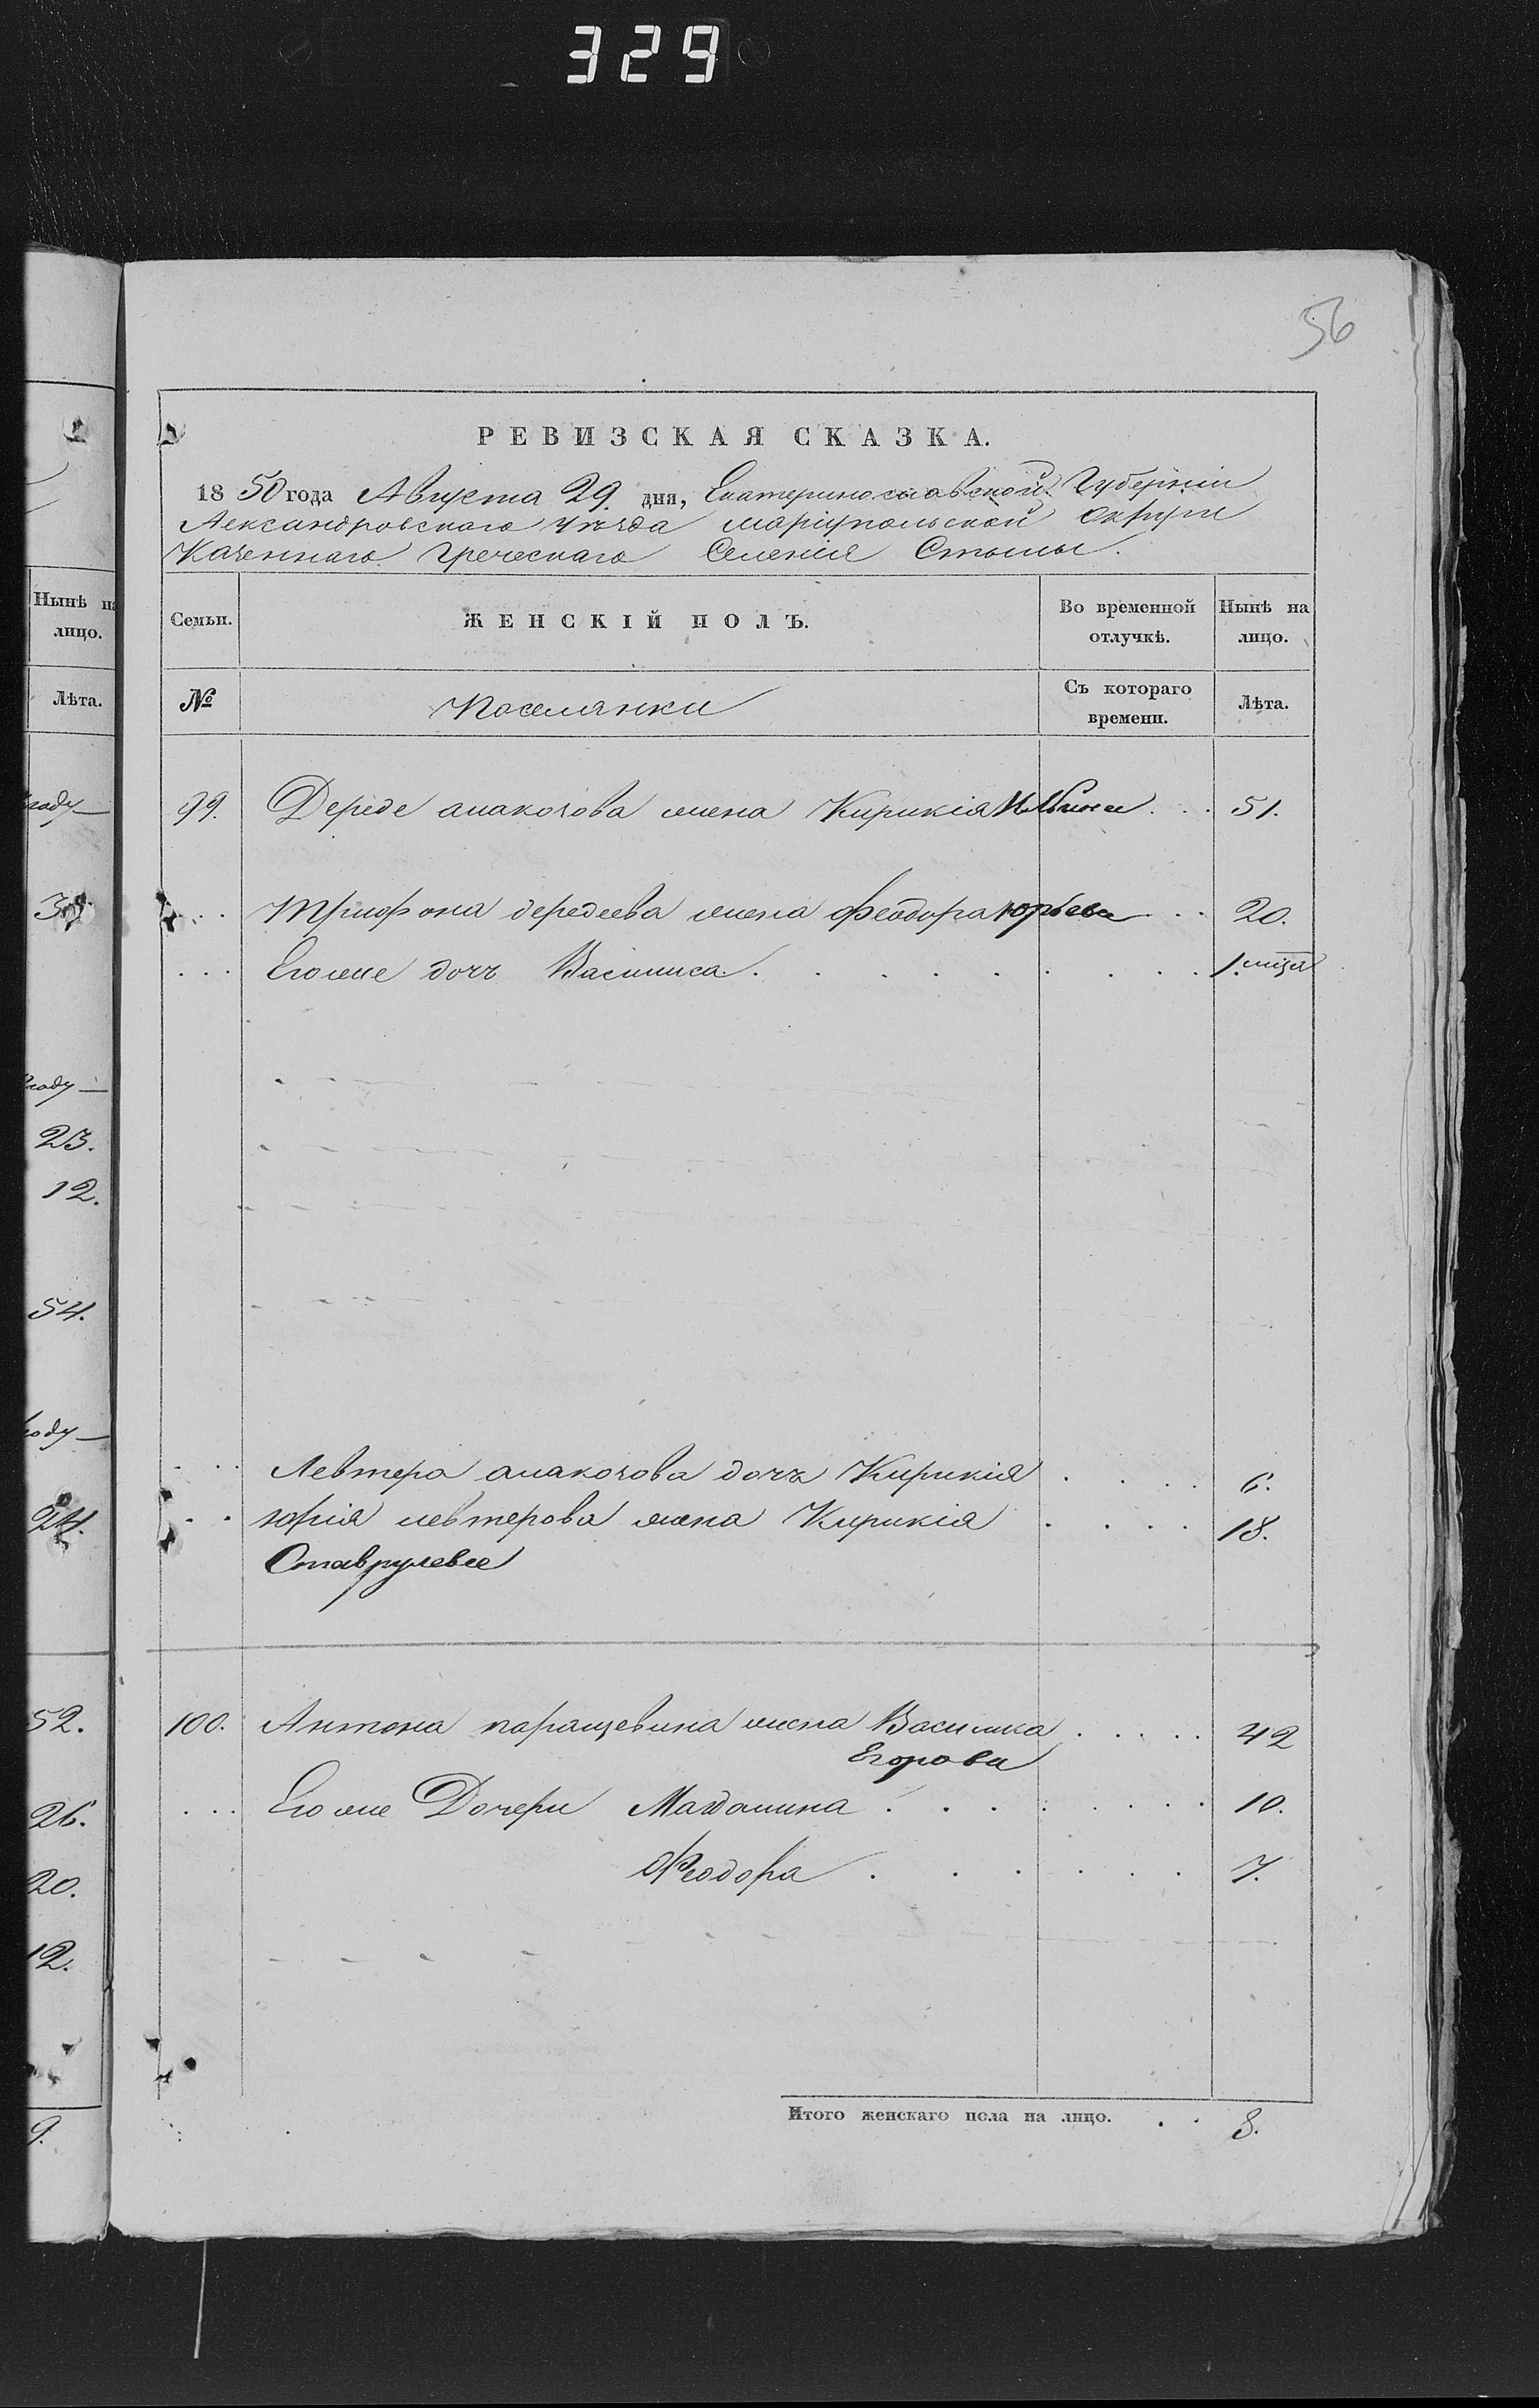 329
56
РЕВИЗСКАЯ СКАЗКА.
1850 года Августа 29. дня, Екатеринославской Губерніи
Александровскаго уѣзда Маріупольской округи
Казеннаго Греческаго Селенія Стылы.
Нынѣ на лицо.
Лѣта.
Семьи. ЖЕНСКІЙ ПОЛЪ. Во временной отлучкѣ. Нынѣ на лицо.
№ Поселянки Съ котораго времени. Лѣта.
году
99. Дереде жена Кирикія Ильина 51.
Трифона дередеева жена Феодора Юрьева 20.
Его же дочь Василиса 1. мѣсяц
году
23.
12.
54.
году
Левтера дочь Кирикія 6.
24.
Юрія левтерова жена Кирикія 18.
Ставрулева
52.
100. Антона жена Василика 42
Егорова
26.
Его же Дочери Магдалина 10.
20.
Феодора 7.
12.
Итого женскаго пола на лицо. 8.
9.